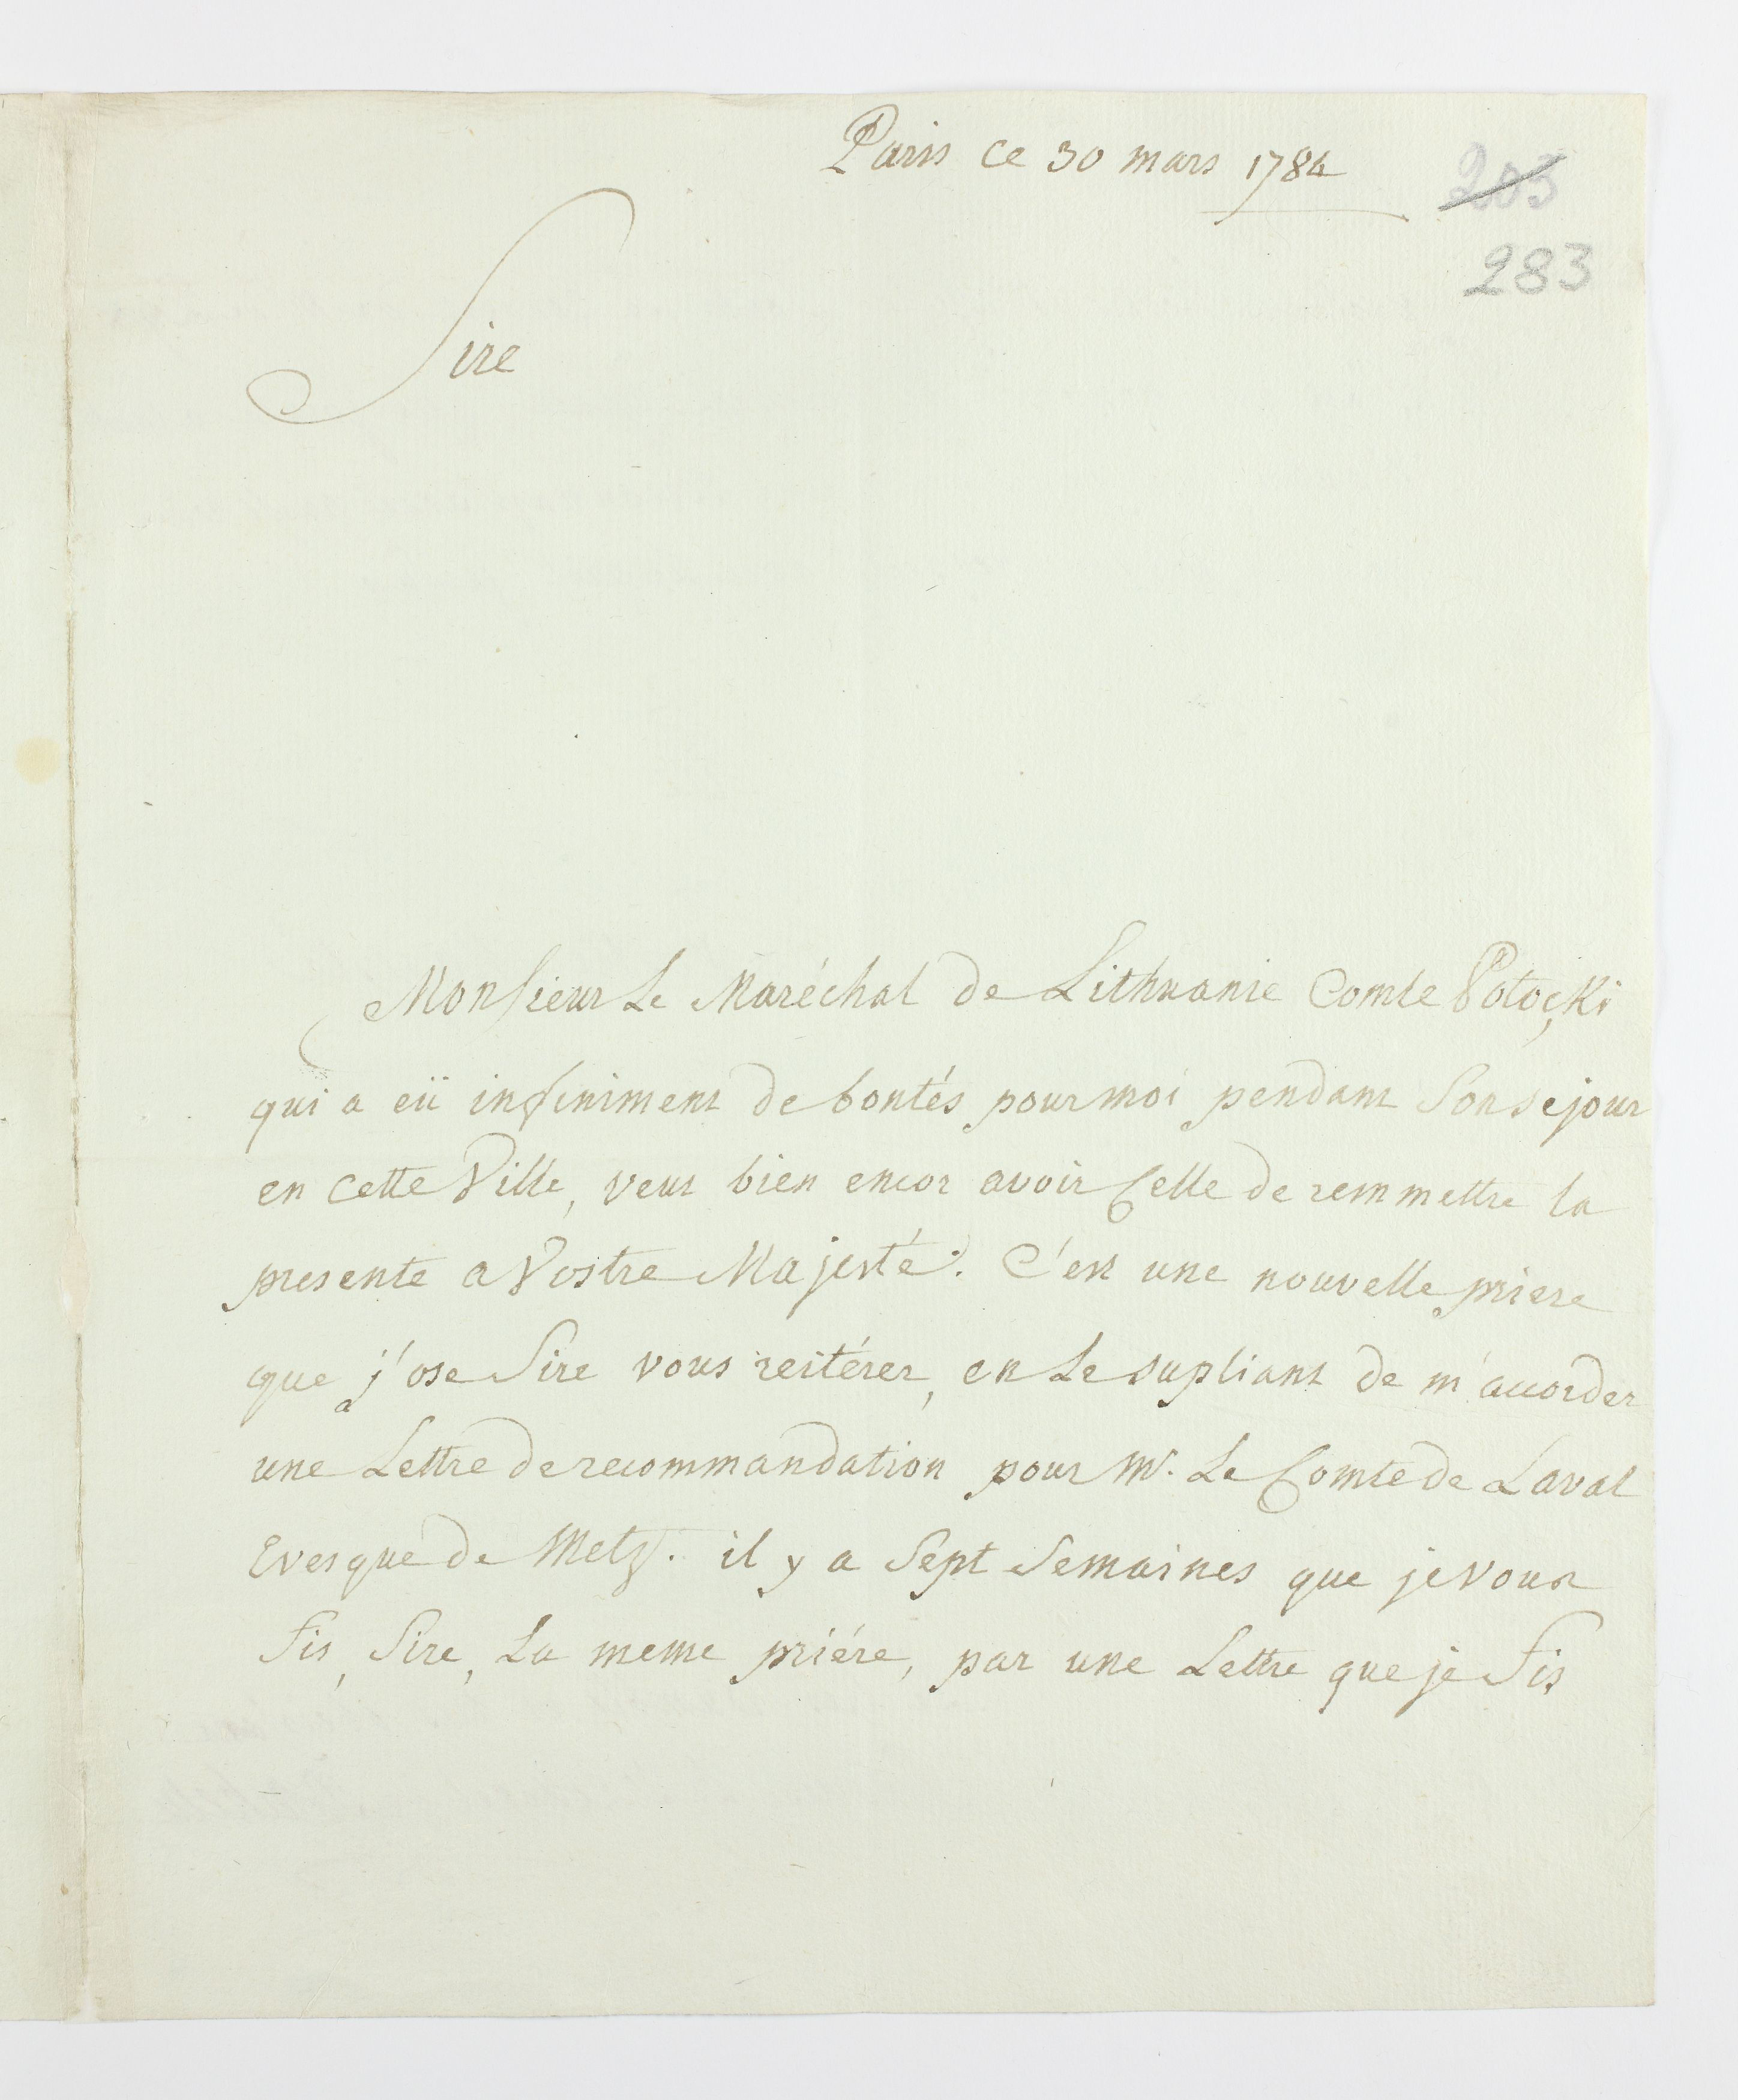 Paris ce 30 mars 1784
203
283
Sire
Monsieur Le Maréchal de Lithuanie Comte Potoçki
qui a eü infiniment de bontés pour moi pendant Son sejour
en cette Ville, veut bien encor avoir Celle de remmettre la
presente a Vostre Majesté. C'est une nouvelle priere
que j'ose Sire vous reitérer, en Le supliant de m'accorder
une Lettre de recommandation pour Mr. Le Comte de Laval
Evesque de Metz. il y a Sept Semaines que je vous
fis, Sire, La meme priére, par une Lettre que je fis